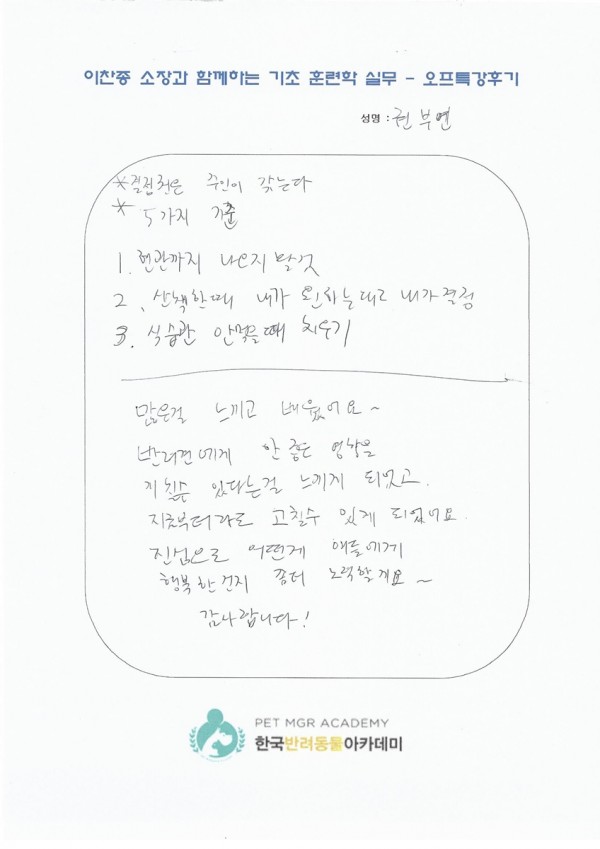 이찬종 소장과 함께하는 기초 훈련학 실무 - 오프특강후기
성명 : 권부연
*결정권은 주인이 갖는다
* 5가지 기준
1. 현관까지 나오지말것
2. 산책할때 내가 원하는대로 내가결정
3. 식습관 안먹을때 치우기
많은걸 느끼고 배웠어요~
반려견에게 안 좋은 영향을
끼칠수 있다는걸 느끼게 되었고.
지금부터라도 고칠수 있게 되었어요.
진심으로 어떤게 애들에게
행복한건지 좀더 노력할게요~
감사합니다!
PET MGR ACADEMY
한국반려동물아카데미